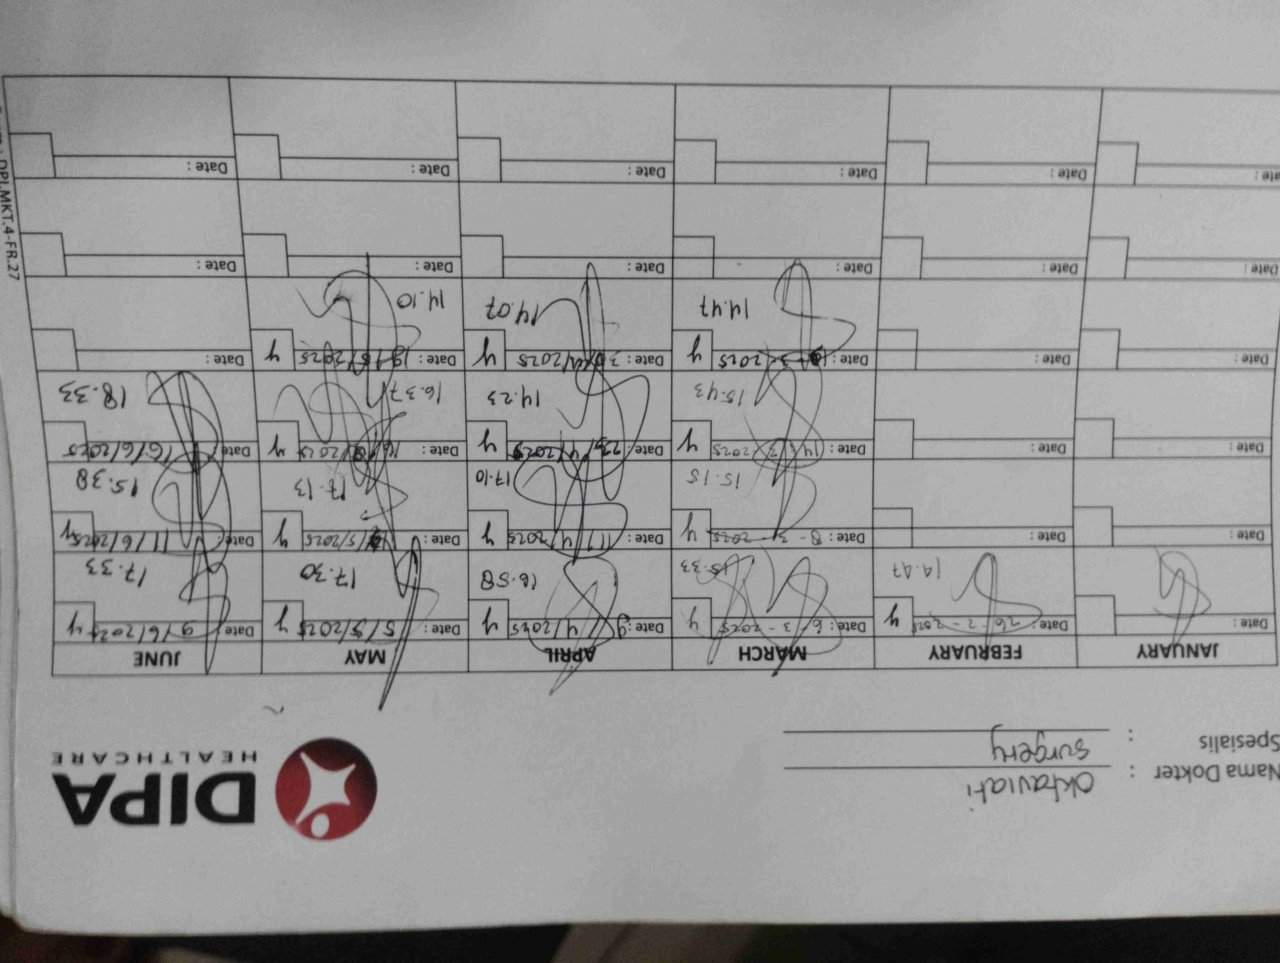 Nama Dokter : Oktaviati
Spesialis : Surgery
DIPA
HEALTHCARE
JANUARY FEBRUARY MARCH APRIL MAY JUNE
Date : Date : 26-2-2025 y Date : 6-3-2025 y Date : 9/4/2025 y Date : 5/5/2025 y Date : 9/6/2025 y
14.47 15.33 16.58 17.30 17.33
Date : Date : Date : 8-3-2025 y Date : 11/4/2025 y Date : /5/2025 y Date : 11/6/2025 y
15.15 17.10 17.13 15.38
Date : Date : Date : 14/3/2025 y Date : 23/4/2025 y Date : 16/5/2025 y Date : 16/6/2025
15.43 14.23 16.37 18.33
Date : Date : Date : 2025 y Date : /4/2025 y Date : 19/5/2025 y Date :
14.47 14.07 14.10
Date : Date : Date : Date : Date : Date :
Date : Date : Date : Date : Date : Date :
DPI.MKT.4-FR.27